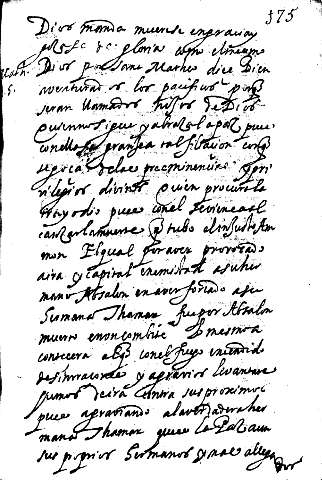 375
Dios manda muerese en gracia y
gloria como el mesmo
Dios por sant Matheo dice Bien
aventurados los pacificos porq
seran llamados hijos de Dios
quien no sigue y abraza la paz pues
con ella se granjea tal filiacion con q
se goça de las preeminencias y pri
vilegios divinos quien procura la
yra y odio pues con el se viene a el
causar la muerte q tubo el injusto Am
mon El qual por aver provocado
a ira y capital enemistad a su her
mano Absalon en aver forçado a su
hermana Thamar fue por Absalon
muerto en un combite
conocera a el q con el fuego encendido
de sinrazones y agravios levantare
humos de ira contra sus proximos
pues agraviando a la verdadera her
mana Thamar que es la Paz aun
sus propios hermanos y mas allega
dos